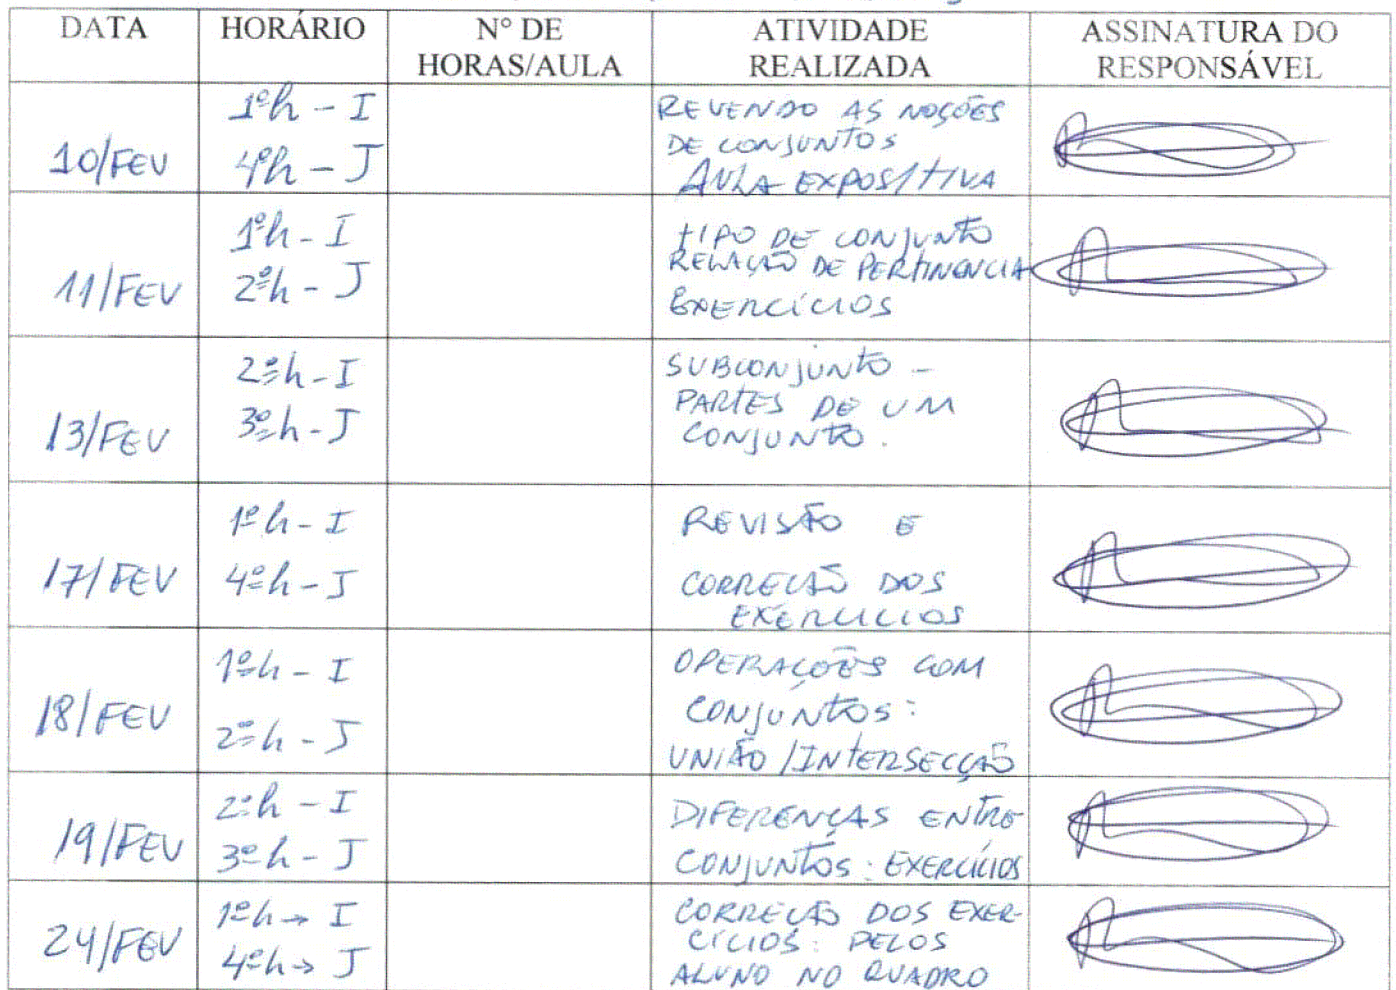 DATA HORÁRIO N° DE HORAS/AULA ATIVIDADE REALIZADA ASSINATURA DO RESPONSÁVEL
10/FEV
1ºh - I
4ºh - J
REVENDO AS NOÇÕES
DE CONJUNTOS
AULA EXPOSITIVA
11/FEV
1ºh - I
2ºh - J
TIPO DE CONJUNTO
RELAÇÃO DE PERTINENCIA
EXERCÍCIOS
13/FEV
2ºh - I
3ºh - J
SUBCONJUNTO -
PARTES DE UM
CONJUNTO.
17/FEV
1ºh - I
4ºh - J
REVISÃO E
CORREÇÃO DOS
EXERCICIOS
18/FEV
1ºh - I
2ºh - J
OPERAÇÕES COM
CONJUNTOS:
UNIÃO/INTERSECÇÃO
19/FEV
2ºh - I
3ºh - J
DIFERENÇAS ENTRE
CONJUNTOS: EXERCÍCIOS
24/FEV
1ºh → I
4ºh → J
CORREÇÃO DOS EXER-
CÍCIOS: PELOS
ALUNO NO QUADRO